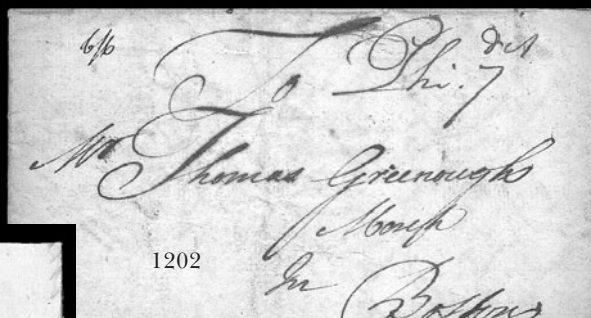 6/6
To Phi. 7 dwt
Mr Thomas Greenough
Merch
In
Boston
1202